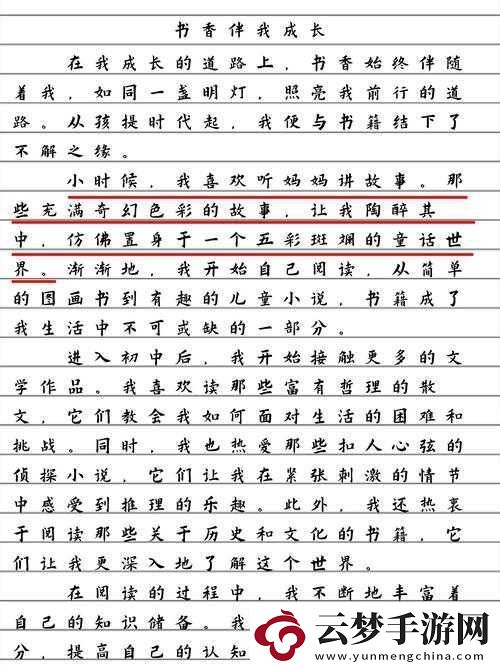 书香伴我成长
在我成长的道路上，书香始终伴随
着我，如同一盏明灯，照亮我前行的道
路。从孩提时代起，我便与书籍结下了
不解之缘。
小时候，我喜欢听妈妈讲故事。那
些充满奇幻色彩的故事，让我陶醉其
中，仿佛置身于一个五彩斑斓的童话世
界。渐渐地，我开始自己阅读，从简单
的图画书到有趣的儿童小说，书籍成了
我生活中不可或缺的一部分。
进入初中后，我开始接触更多的文
学作品。我喜欢读那些富有哲理的散
文，它们教会我如何面对生活的困难和
挑战。同时，我也热爱那些扣人心弦的
侦探小说，它们让我在紧张刺激的情节
中感受到推理的乐趣。此外，我还热衷
于阅读那些关于历史和文化的书籍，它
们让我更深入地了解这个世界。
在阅读的过程中，我不断地丰富着
自己的知识储备。我
分，提高自己的认知
云梦手游网
www.yunmengchwl.com